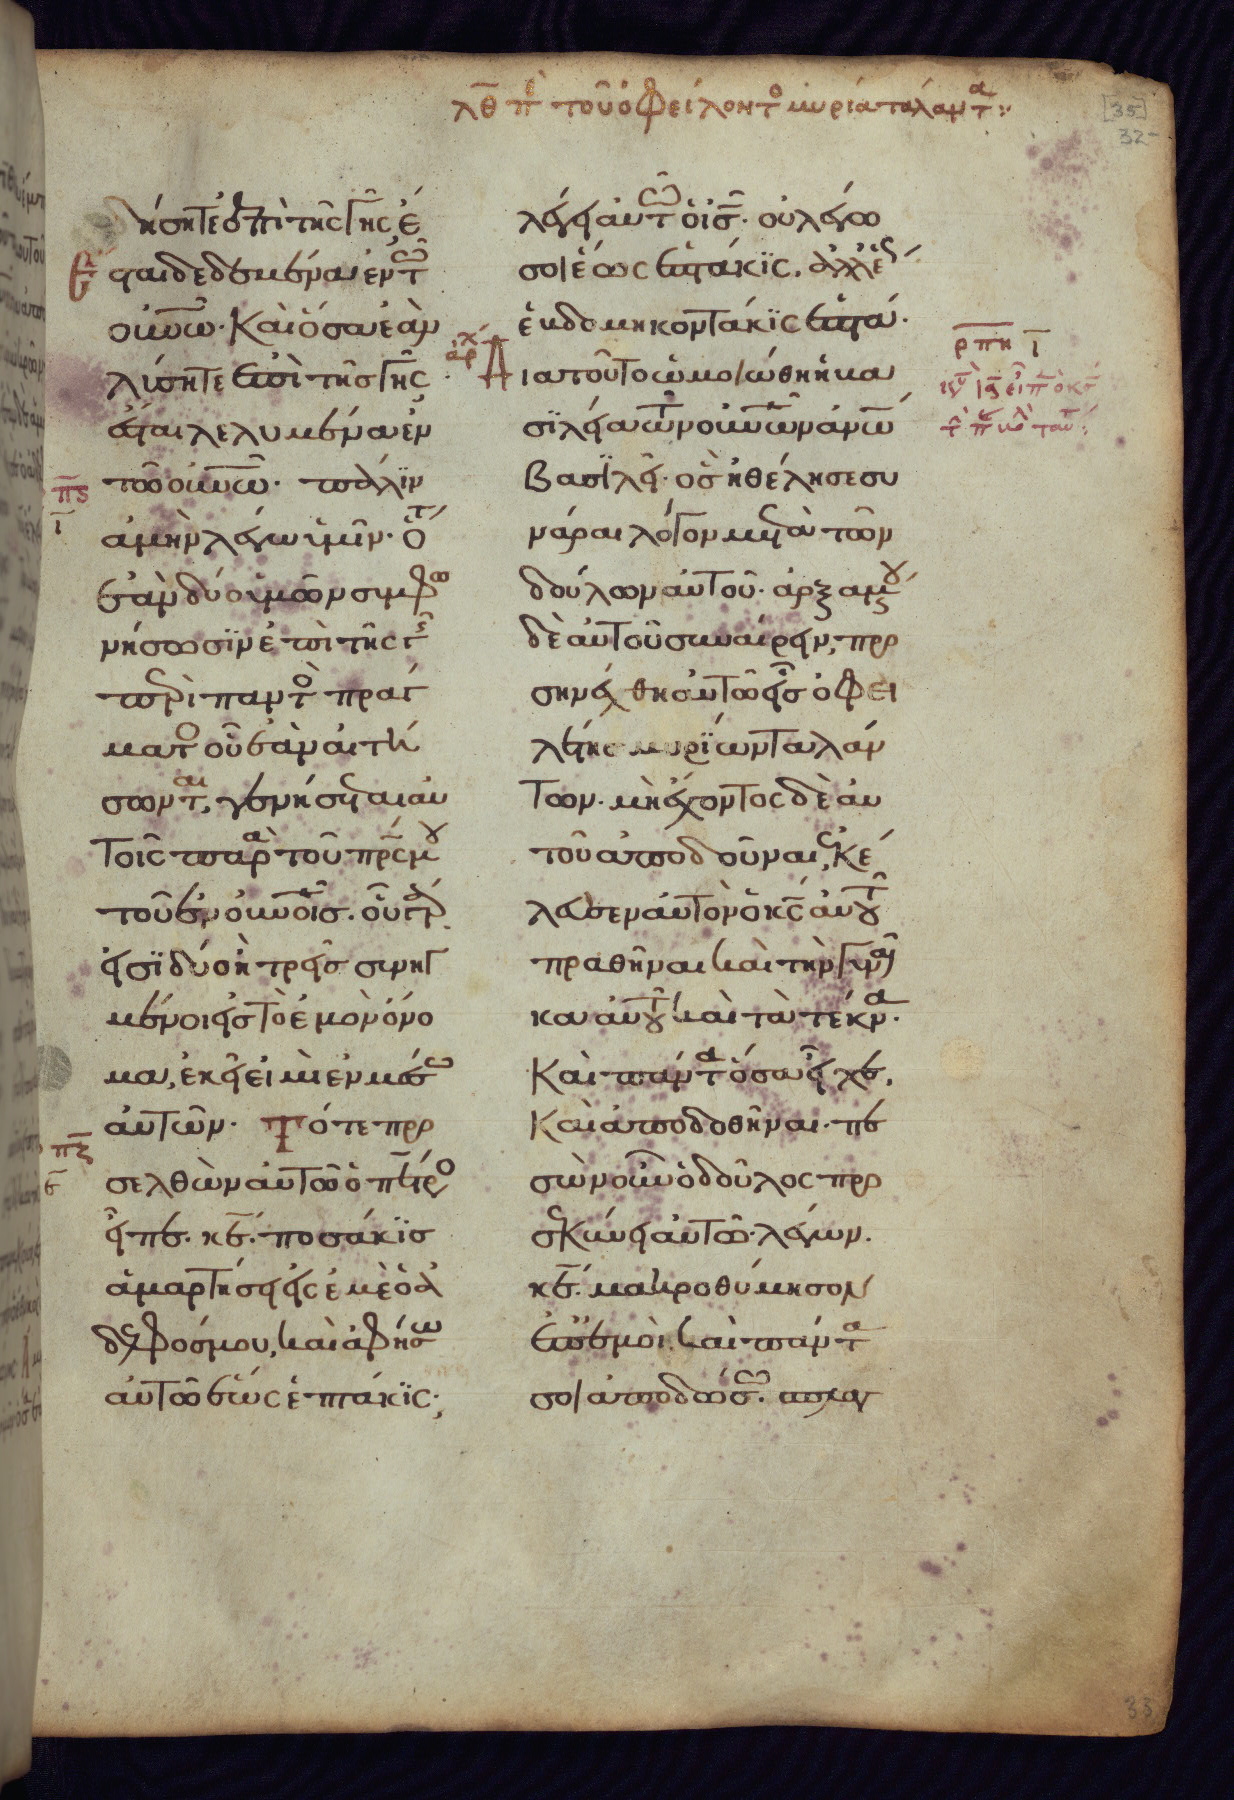 λθ πρ τοῦ ὀφείλοντο μυρία τάλαντα
[35]
32
δήσητε ἐπὶ τῆς γῆς, ἔ
σται δεδεμένα ἐν τῶ
οὐνῶ· Καὶ ὅσα ἐὰν
λύσητε ἐπὶ τῆς γῆς
ἔσται λελυμένα ἐν
τῶ οὐνῶ· πάλϊν
πς
ι
ἀμὴν λέγω ὑμῖν· ὅτ
ἐὰν δύο ὑμῶν συμφω
νήσωσϊν ἐπὶ τῆς γῆ
περὶ παντὸ πράγ
ματο οὗ ἐὰν αἰτή
σωνται, γενήσεται αὐ
τοῖς παρὰ τοῦ πρς μου
τοῦ ἐν οὐνοῖς. οὗ γάρ
εἰσϊ δύο ἢ τρεῖς συνηγ
μένοι εἰς τὸ ἐμὸν ὄνο
μα, ἐκεῖ εἰμὶ ἐν μέσω
αὐτῶν· Τότε προ
πζ
ε
σελθὼν αὐτῶ ὁ πέτρο
εἶπε. κε. ποσάκϊς
ἁμαρτήσει εἰς ἐμὲ ὁ ἀ
δελφός μου, καὶ ἀφήσω
αὐτῶ ἕως ἑπτάκϊς;
λέγει αὐτῶ ὁ ις. οὐ λέγω
σοι ἕως ἑπτάκϊς. ἀλλ ἕως
ἑβδομηκοντάκϊς ἑπτά.
αρχ
Διὰ τοῦτο ὡμοιώθη ἡ βα
σϊλεία τῶν οὐνῶν ἀνω
βασϊλεῖ. ὃς ἠθέλησε συ
νάραι λόγον μετὰ τῶν
δούλων αὐτοῦ. ἀρξαμου
δὲ αὐτοῦ συναίρειν, προ
σηνέχθη αὐτῶ εἷς ὀφει
λέτης μυρϊων ταλάν
των. μὴ ἔχοντος δὲ αὐ
τοῦ ἀποδοῦναι, ἐκέ
λευσεν αὐτὸν ὁ κς αὐτοῦ
πραθῆναι καὶ τὴν γυναῖ
κα αὐτοῦ καὶ τὰ τέκνα.
Καὶ πάντα ὅσα εἶχε,
Καὶ ἀποδοθῆναι. πε
σὼν οὖν ὁ δοῦλος προ
σεκύνει αὐτῶ. λέγων.
κε. μακροθύμησον
ἐπ ἐμοὶ. καὶ πάντα
σοι ἀποδώσω.
ρπη ι
33